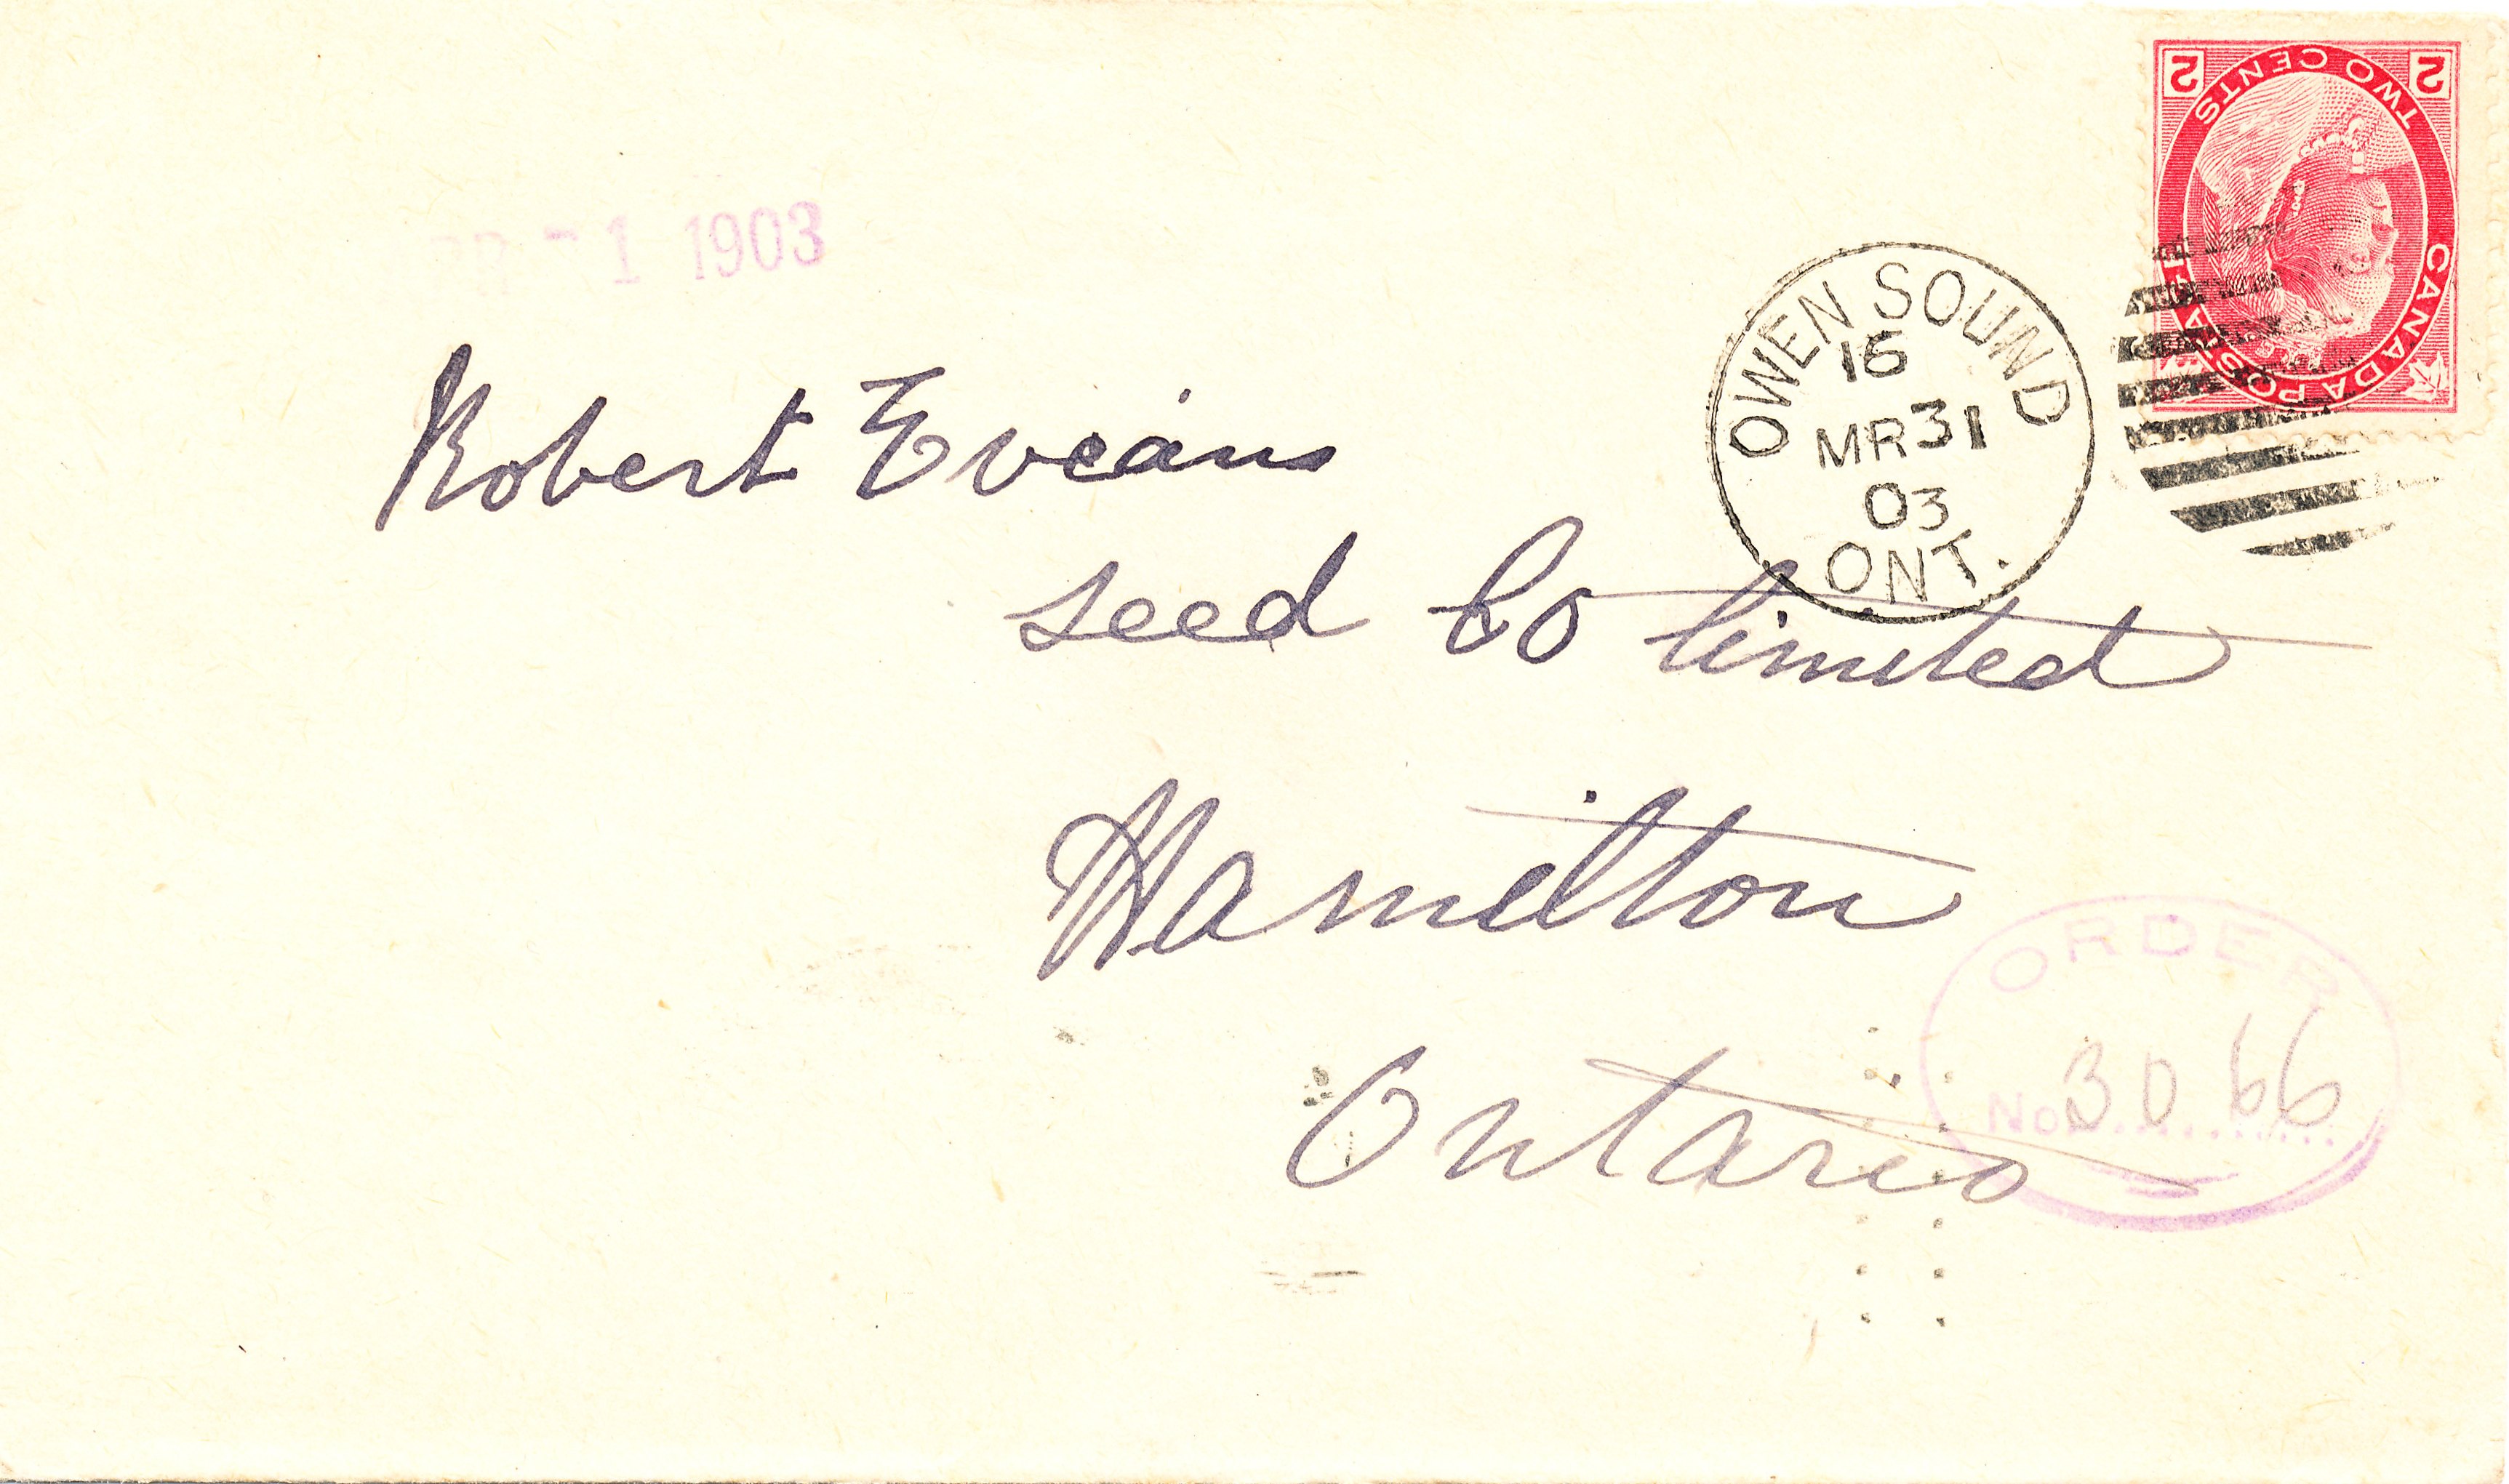 2 2
TWO CENTS
CANADA POSTAGE
1 1903
OWEN SOUND
15
MR 31
03
ONT.
Robert Evans
seed Co limited
Hamilton
Ontario
ORDER
No 3066